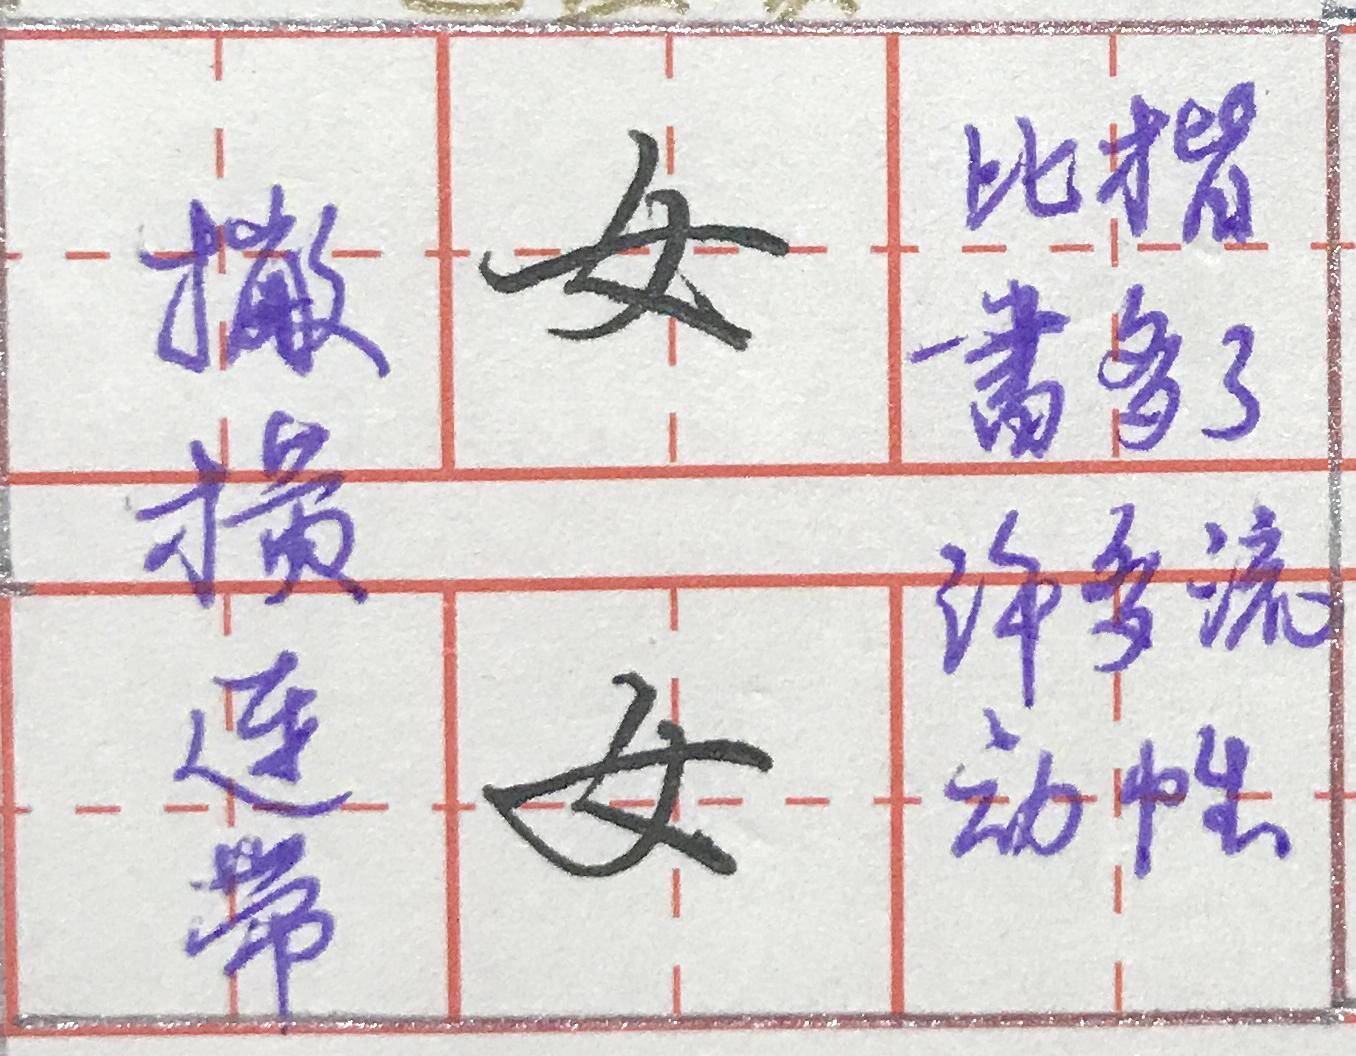 撇
横
连
带
女
女
比楷
书多了
许多流
动性